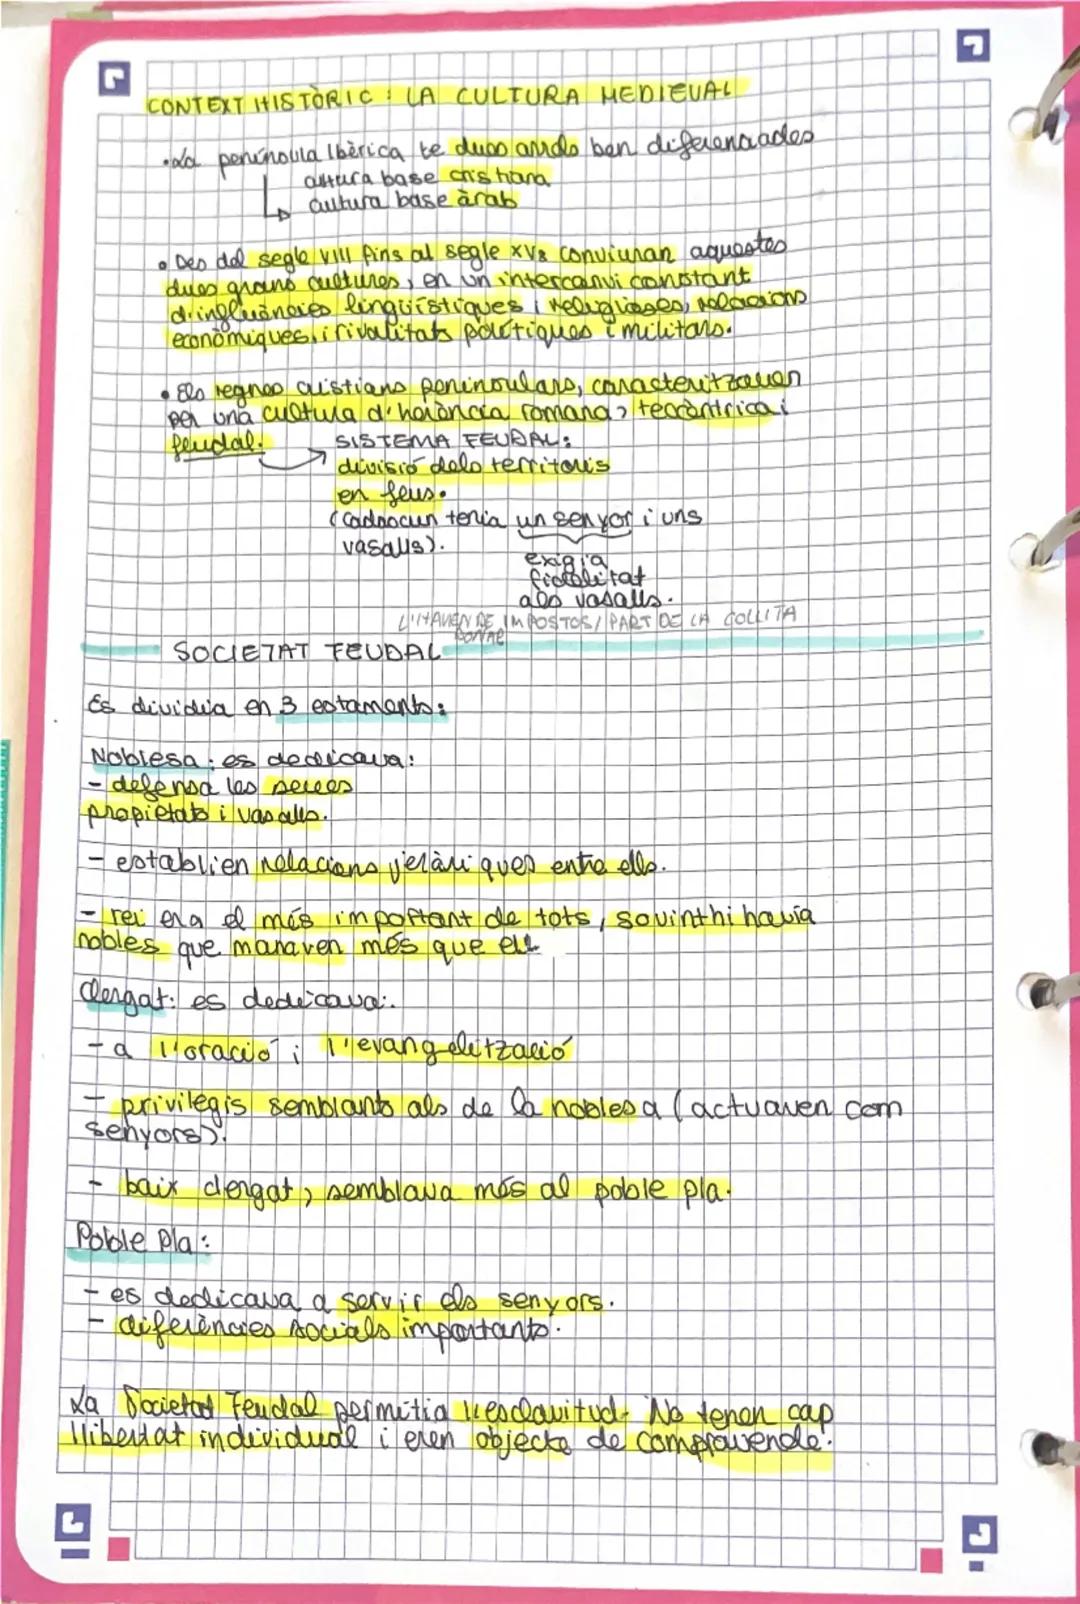 CONTEXT HISTÒRIC : LA CULTURA MEDIEVAL
• La península Ibèrica te dues ben diferenciades
cultura base cristiana
cultura base àrab
• Des del segle VIII fins al segle XVs conviuran aquestes
dues grans cultures, en un intercanvi constant
d'influències lingüístiques i religioses, relacions
econòmiques, i rivalitats polítiques i militars.
• Els regnes cristians peninsulars, caracteritzaven
per una cultura d'herència romana, teocèntrica i
feudal.
SISTEMA FEUDAL:
divisió dels territoris
en feus.
(Cadascun tenia un senyor i uns
vasalls).
exigia
fidelitat
als vasalls.
L'HAVEN DE IMPOSTOS / PART DE LA COLLITA
DONAR
SOCIETAT FEUDAL
Es dividia en 3 estaments:
Noblesa : es dedicava:
- defensa les seves
propietats i vasalls.
- establien relacions jeràriques entre ells.
- rei era el més important de tots, sovint hi havia
nobles que manaven més que ell
Clergat: es dedicava:
- a l'oració i l'evangelització
- privilegis semblants als de la noblesa (actuaven com
senyors).
- baix clergat, semblava més al poble pla.
Poble Pla :
- es dedicava a servir els senyors.
- diferències socials importants.
La Societat Feudal permitia l'esclavitud. No tenen cap
llibertat individual i eren objecte de compravende.